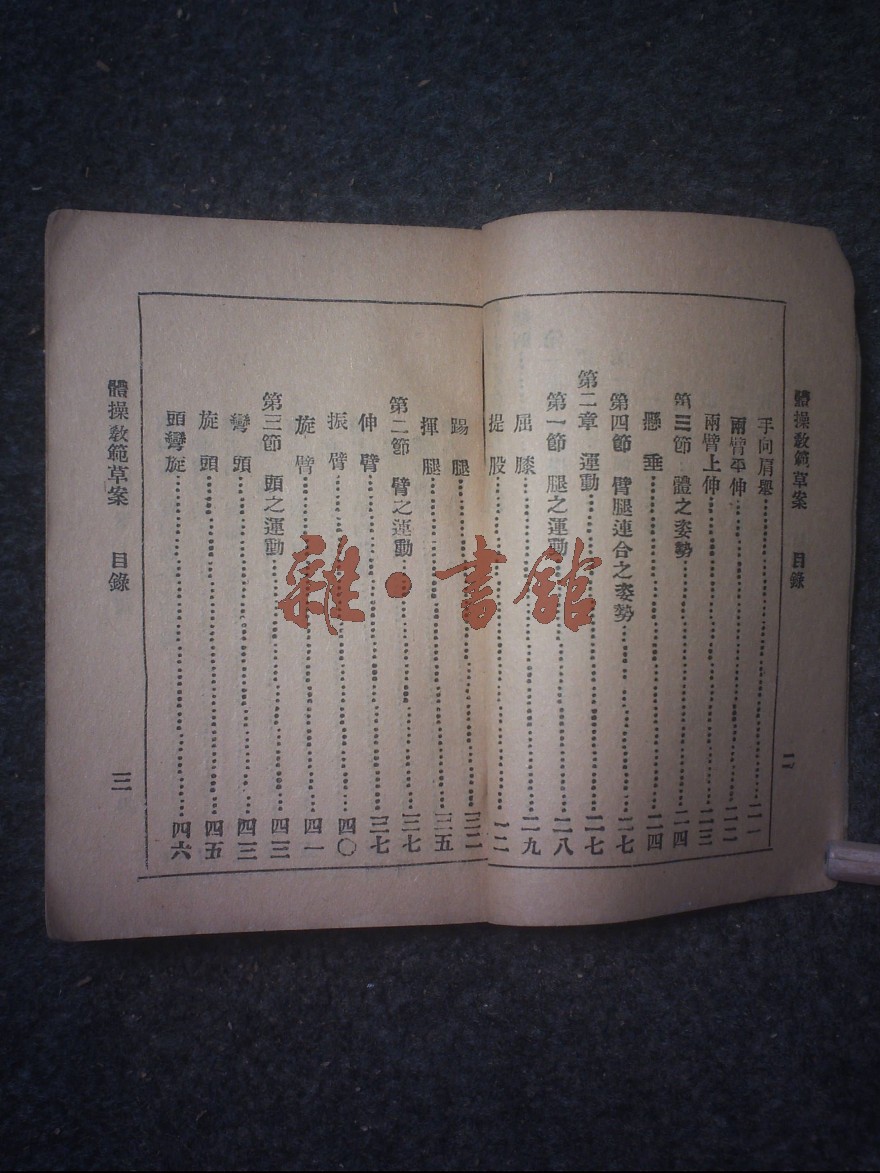 體操教範草案 目錄 二
手向肩舉 二一
兩臂平伸 二二
兩臂上伸 二三
第三節 體之姿勢 二四
懸垂 二四
第四節 臂腿連合之姿勢 二七
第二章 運動 二七
第一節 腿之運動 二八
屈膝 二九
提股
踢腿 三二
揮腿 三五
第二節 臂之運動 三七
伸臂 三七
振臂 四〇
旋臂 四一
第三節 頭之運動 四三
彎頭 四三
旋頭 四五
頭彎旋 四六
體操教範草案 目錄 三
雜·書館